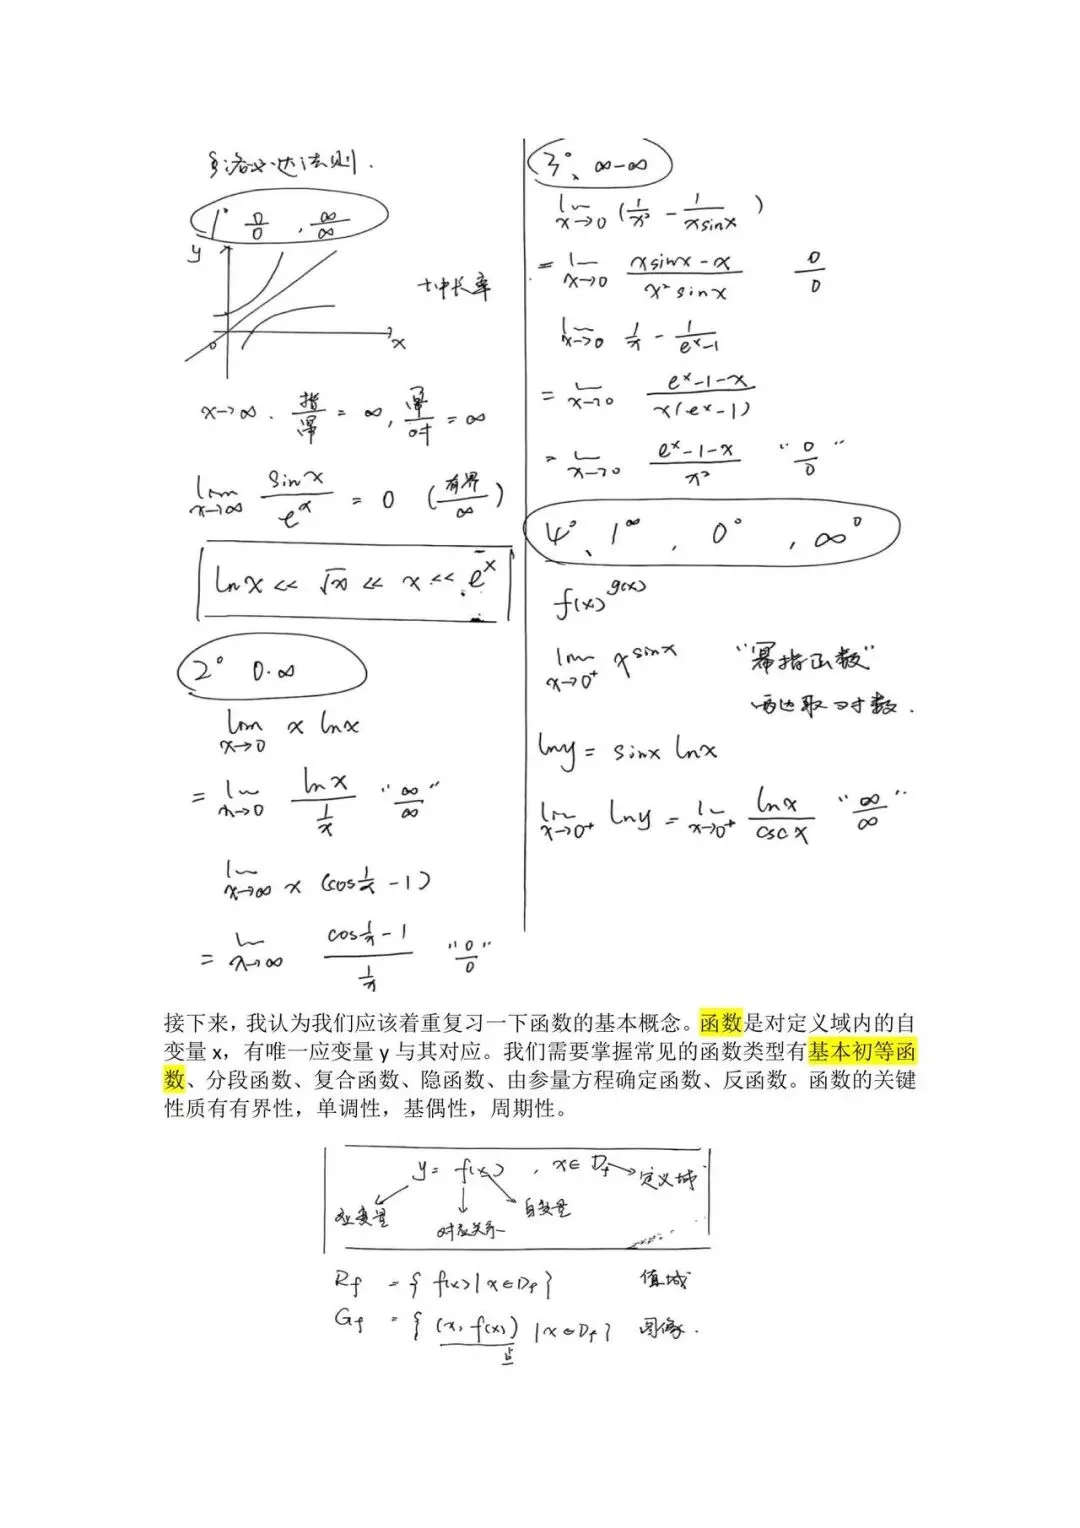 §洛必达法则.
1° 0/0 , ∞/∞
y
0
x
增长率
x→∞. 指/幂 = ∞, 幂/对 = ∞
lim x→∞ sinx/e^x = 0 (有界/∞)
lnx << √x << x << e^x
2° 0·∞
lim x→0 x lnx
= lim x→0 lnx/(1/x) "∞/∞"
lim x→∞ x (cos1/x - 1)
= lim x→∞ (cos1/x - 1)/(1/x) "0/0"
3°、∞-∞
lim x→0 ( - 1/(xsinx))
= lim x→0 (xsinx - x)/(x² sinx) 0/0
lim x→0 1/x - 1/(e^x-1)
= lim x→0 (e^x-1-x)/(x(e^x-1))
= lim x→0 (e^x-1-x)/x² "0/0"
4°、1^∞ , 0° , ∞°
f(x)^g(x)
lim x→0+ x^sinx "幂指函数"
两边取对数.
lny = sinx lnx
lim x→0+ lny = lim x→0+ lnx/cscx "∞/∞"
接下来，我认为我们应该着重复习一下函数的基本概念。函数是对定义域内的自
变量 x，有唯一应变量 y 与其对应。我们需要掌握常见的函数类型有基本初等函
数、分段函数、复合函数、隐函数、由参量方程确定函数、反函数。函数的关键
性质有有界性，单调性，基偶性，周期性。
y = f(x) , x∈Df→定义域
应变量 对应关系 自变量
Rf = { f(x) | x∈Df } 值域
Gf = { (x, f(x)) | x∈Df } 图像.
点